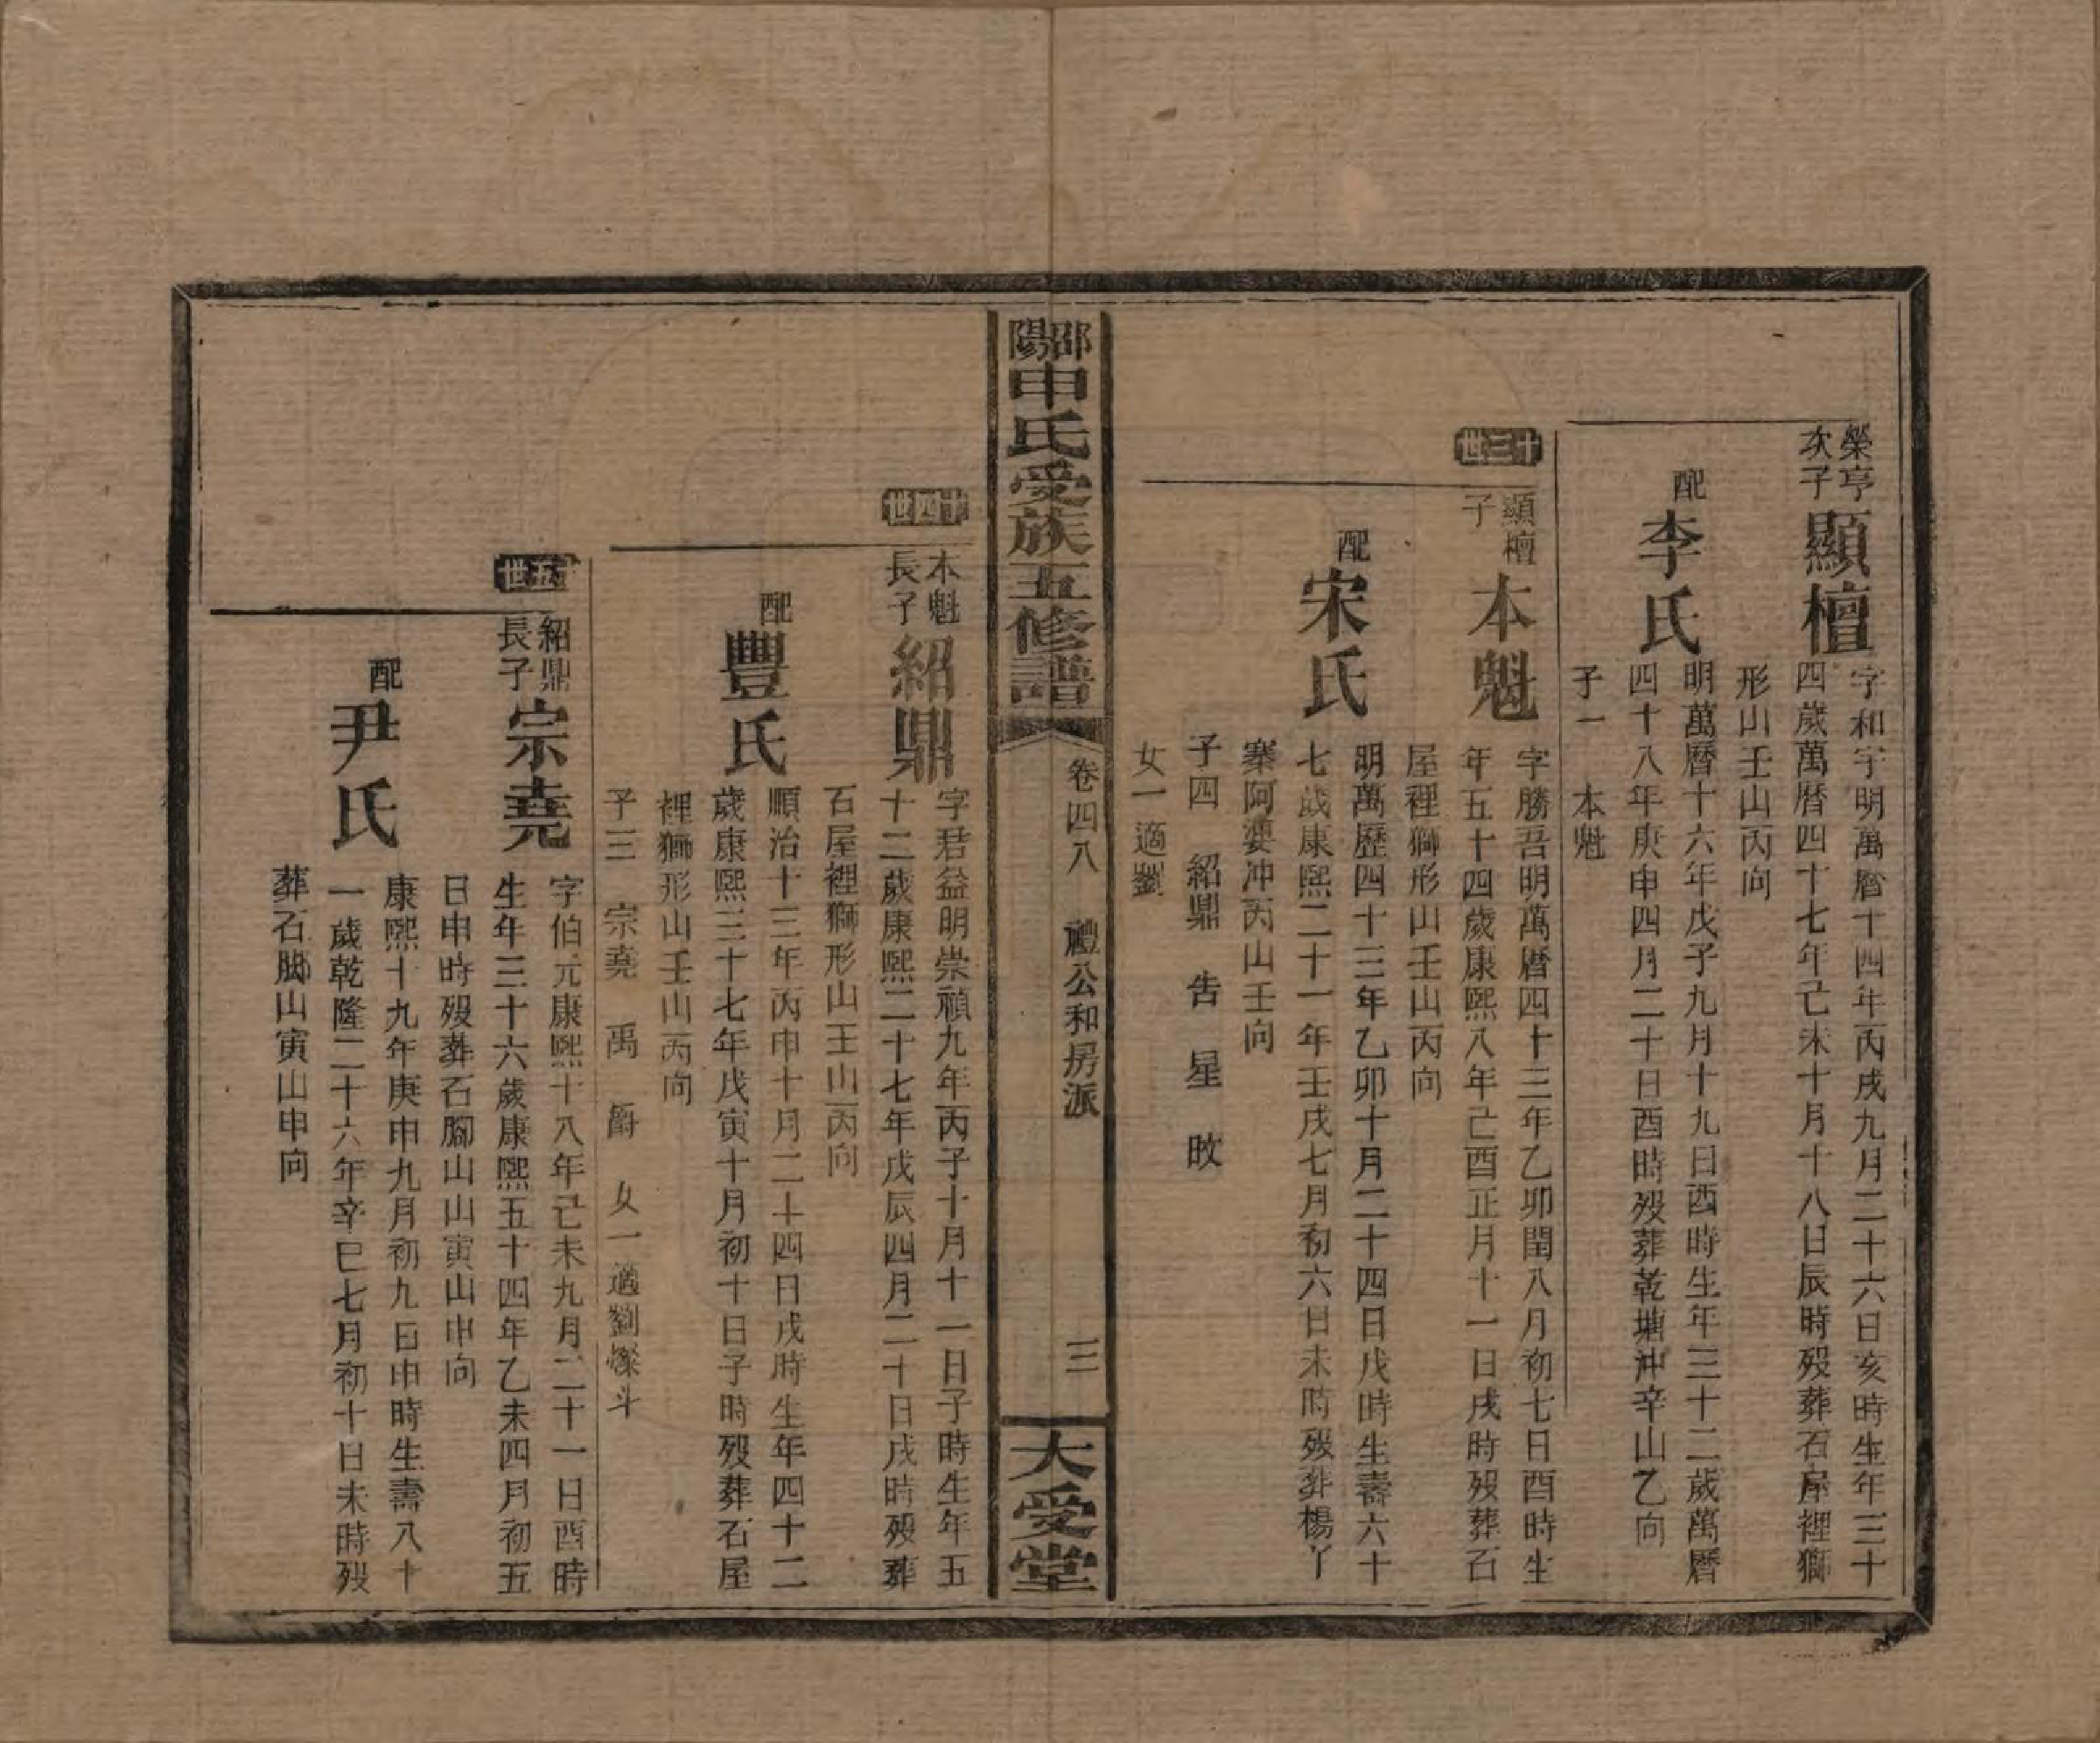 榮亨
次子
顯檀
字和宇明萬曆十四年丙戌九月二十六日亥時生年三十
四歲萬曆四十七年己未十月十八日辰時歿葬石屋裡獅
形山壬山丙向
配
李氏
明萬曆十六年戊子九月十九日酉時生年三十二歲萬曆
四十八年庚申四月二十日酉時歿葬乾塘沖辛山乙向
子一 本魁
十三世
顯檀
子
本魁
字勝吾明萬曆四十三年乙卯閏八月初七日酉時生
年五十四歲康熙八年己酉正月十一日戌時歿葬石
屋裡獅形山壬山丙向
配
宋氏
明萬歷四十三年乙卯十月二十四日戌時生壽六十
七歲康熙二十一年壬戌七月初六日未時歿葬楊丫
寨阿婆沖丙山壬向
子四 紹鼎 告 星 畋
女一適劉
邵陽申氏受族五修譜
卷四八 禮公和房派
三
大受堂
十四世
本魁
長子
紹鼎
字君益明崇禎九年丙子十月十一日子時生年五
十二歲康熙二十七年戊辰四月二十日戌時歿葬
石屋裡獅形山壬山丙向
配
豐氏
順治十三年丙申十月二十四日戌時生年四十二
歲康熙三十七年戊寅十月初十日子時歿葬石屋
裡獅形山壬山丙向
子三 宗堯 禹 爵 女一適劉燦斗
十五世
紹鼎
長子
宗堯
字伯元康熙十八年己未九月二十一日酉時
生年三十六歲康熙五十四年乙未四月初五
日申時歿葬石腳山山寅山申向
配
尹氏
康熙十九年庚申九月初九日申時生壽八十
一歲乾隆二十六年辛巳七月初十日未時歿
葬石腳山寅山申向